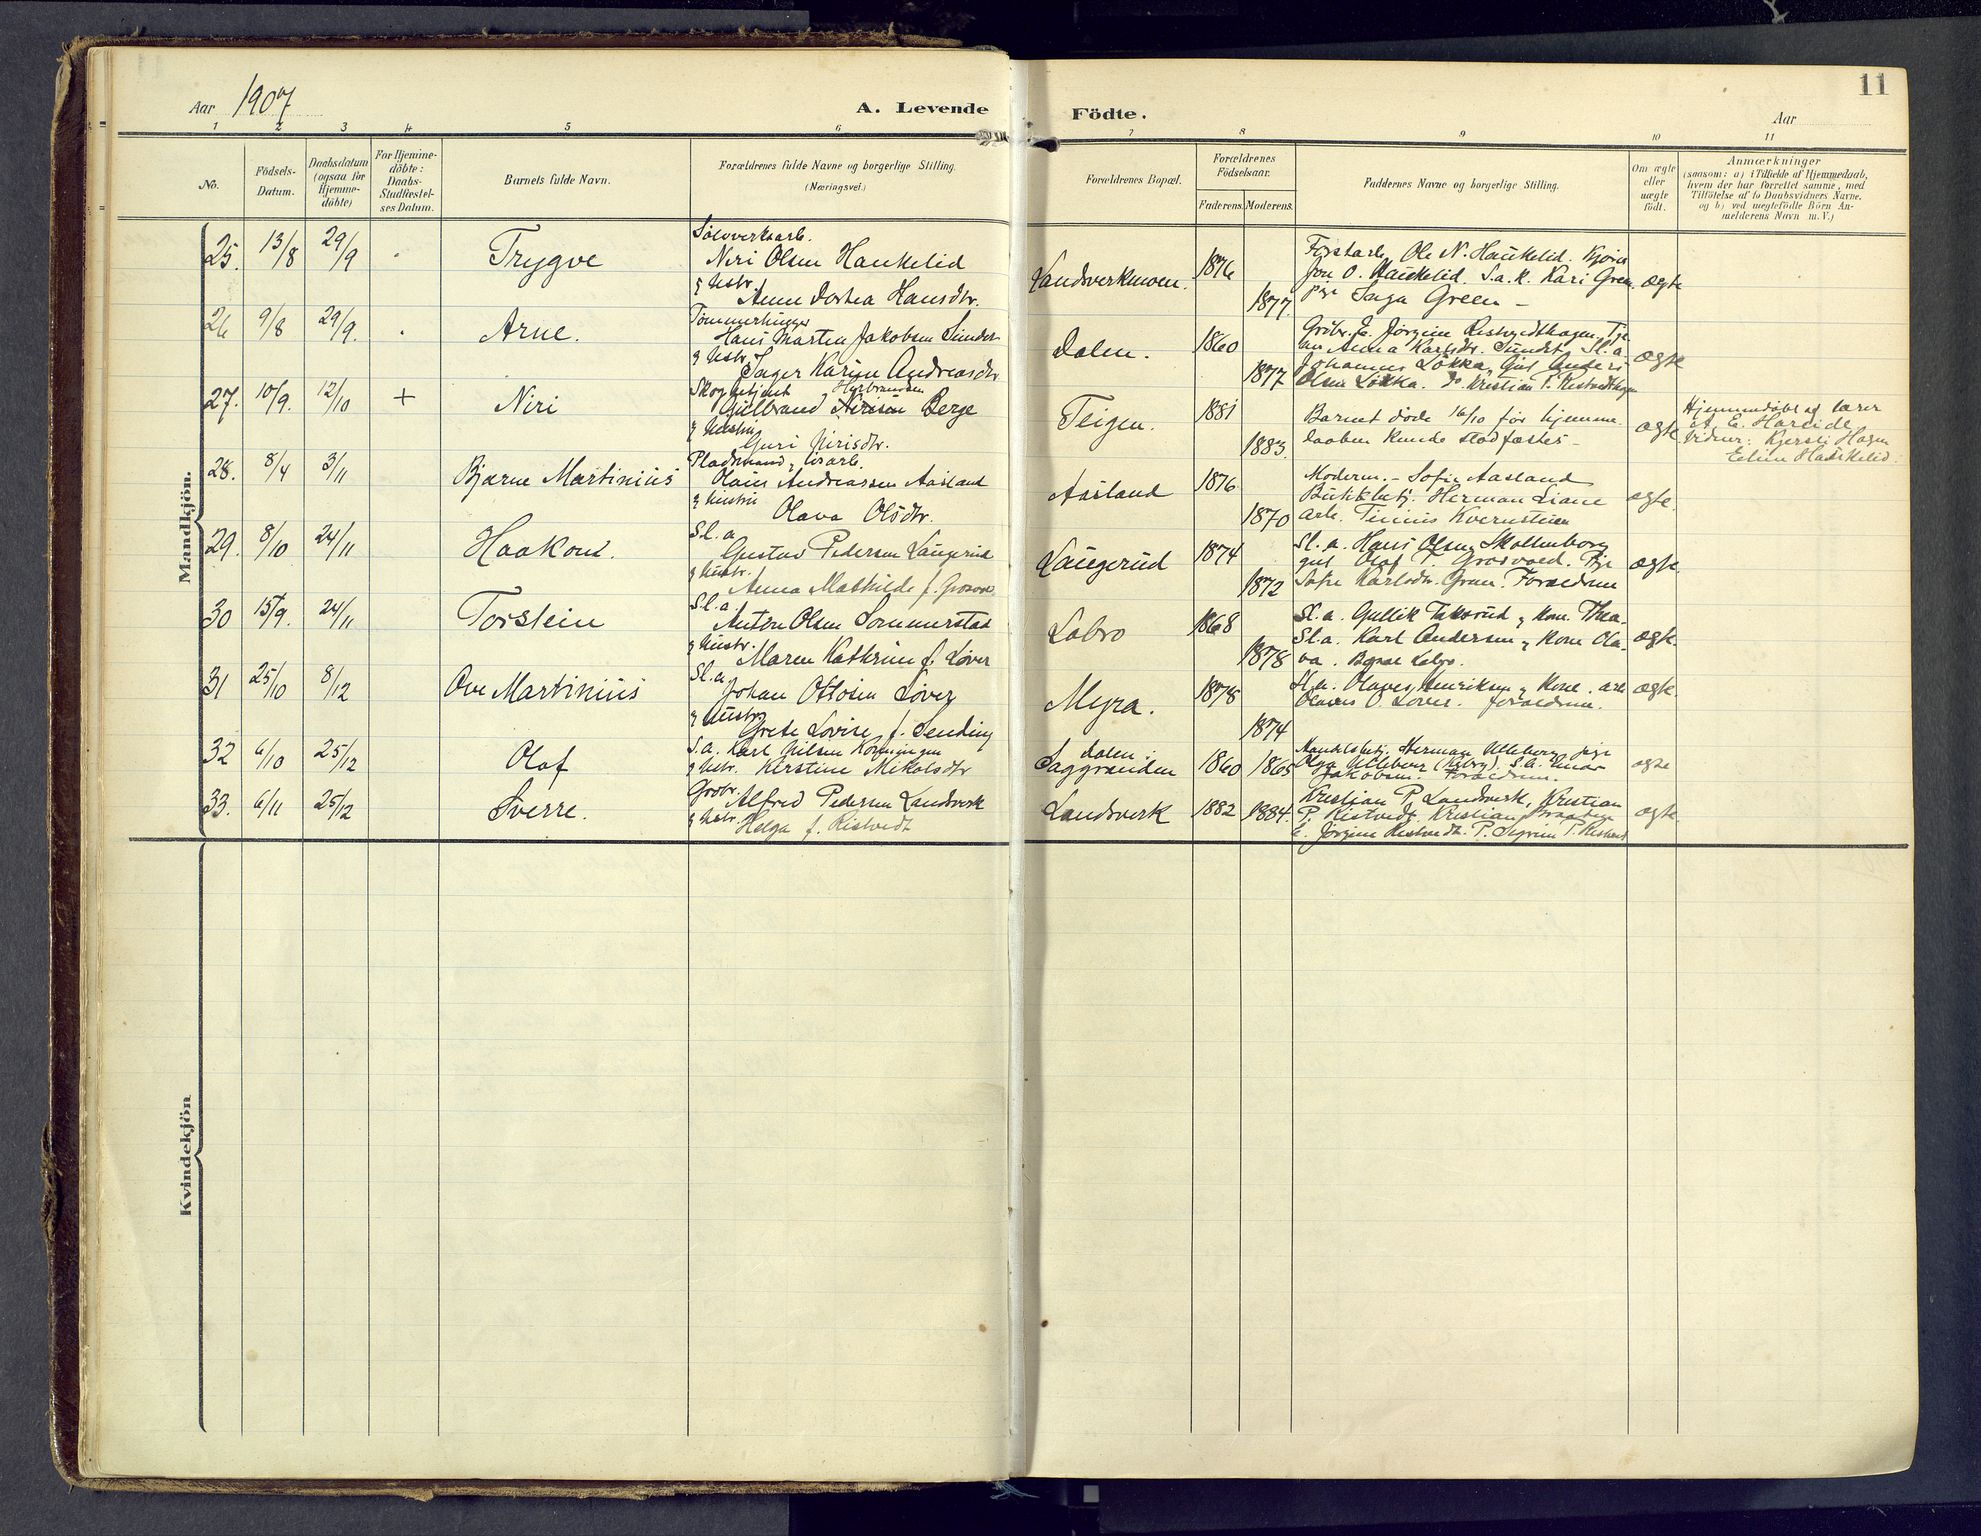 11
Aar 1907
A. Levende
Födte.
Aar
1 2 3 4 5 6 7 8 9 10 11
No.
Födsels-
Datum.
Daabsdatum
(ogsaa for
Hjemme-
döbte)
For Hjemme-
döbte:
Daabs-
Stadfæstel-
ses Datum.
Barnets fulde Navn.
Forældrenes fulde Navne og borgerlige Stilling.
(Næringsvei.)
Forældrenes Bopæl.
Forældrenes
Födselsaar.
Faderens. Moderens.
Faddernes Navne og borgerlige Stilling.
Om ægte
eller
uægte
födt.
Anmærkninger
(saasom: a) i Tilfælde af Hjemmedaab,
hvem der har forrettet samme, med
Tilföielse af to Daabsvidners Navne.
og b) ved uægtefödte Börn An-
melderens Navn m. V.)
Mandkjön.
25. 13/8 29/9 Trygve
Sølvverksarb.
Niri Olsen Haukelid
g Hstr.
Anne Dorthea Hansdtr.
Landsverkmoen. 1876 1877
Ole N. Haukelid.
Jon O. Haukelid. S.a.k. Kari Green
pige Inga Green
ægte
26 9/8 29/9. Arne.
Tømmerhugger
Hans Martin Jakobsen Sundet
g Hstr.
Inger Karine Andreasdtr
Dalen. 1860 1877
Anna Karlsdtr. Sundet. Sl. a.
Johannes Løkka, Gut Anders
Olsen Løkka. do Kristian P. Ristvedthagen
ægte
27. 10/9. 12/10 + Niri
Skogbetjent Herbrandsen
Gulbrand Nirisen Berge
g Hustru
Guri Nirisdtr.
Teigen. 1881 1883.
Barnet døde 16/10 før hjemme-
daaben kunde stadfæstes -
ægte
Hjemmedøbt af lærer
A. E. Hareide
Vidner: Kjersti Hagen
Eline Haukelid.
28. 8/4 3/11 Bjarne Martinius
Pladsmand,
Olaus Andreassen Aasland
g Hustru
Olava Olsdtr.
Aasland 1876 1870
Moderen. - Sofie Aasland
Butikbetj. Herman Liane
arb. Tinius Kvernsteien
ægte.
29. 8/10 24/11 Haakon.
Sl. a.
Gustav Pedersen Laugerud
g Hustr.
Anna Mathilde f. Grosvo
Laugerud 1874 1872
Sl. a. Hans Olsen Skollenborg
gut Olaf T. Grosvold. Pige
Sofie Karlsdtr. Gran. Forældrene
ægte.
30 15/9. 24/11 Torstein
Sl. a.
Anton Olsen Sommerstad
g Hustr.
Maren Kathrine f. Løver
Labro 1868 1878
Sl. a. Gullik Taksrud g Kone Thea-
Sl. a. Karl Andersen g Kone Ola-
va. Begge Labro.
ægte.
31 25/10 8/12 Ove Martinius
Sl. a.
Johan Ottosen Løver
g Hustr.
Grete Lovise f. Sending
Myra. 1878 1874
Olaves Henriksen g Kone. arb
Olaves O. Løver. forældrene.
ægte.
32 6/10 25/12 Olaf
S. a. Karl Nilsen Korningen
g Hstr. Kerstine Mikalsdtr
Dalen:
Saggrenden 1860 1865
Handelsbetj. Herman Ulleberg, pige
Olga Ulleberg S. a. Einar
Jakobsen. Forældrene.
ægte
33. 6/11 25/12 Sverre.
Grbr. Alfred Pedersen Landsverk
g Hstr. Helga f. Ristvedt
Landsverk 1882 1884.
Kristian P. Landsverk, Kristian
P. Ristvedt. Kristian Braaten
E. Jørgine Ristvedt. P.
ægte.
Kvindekjön